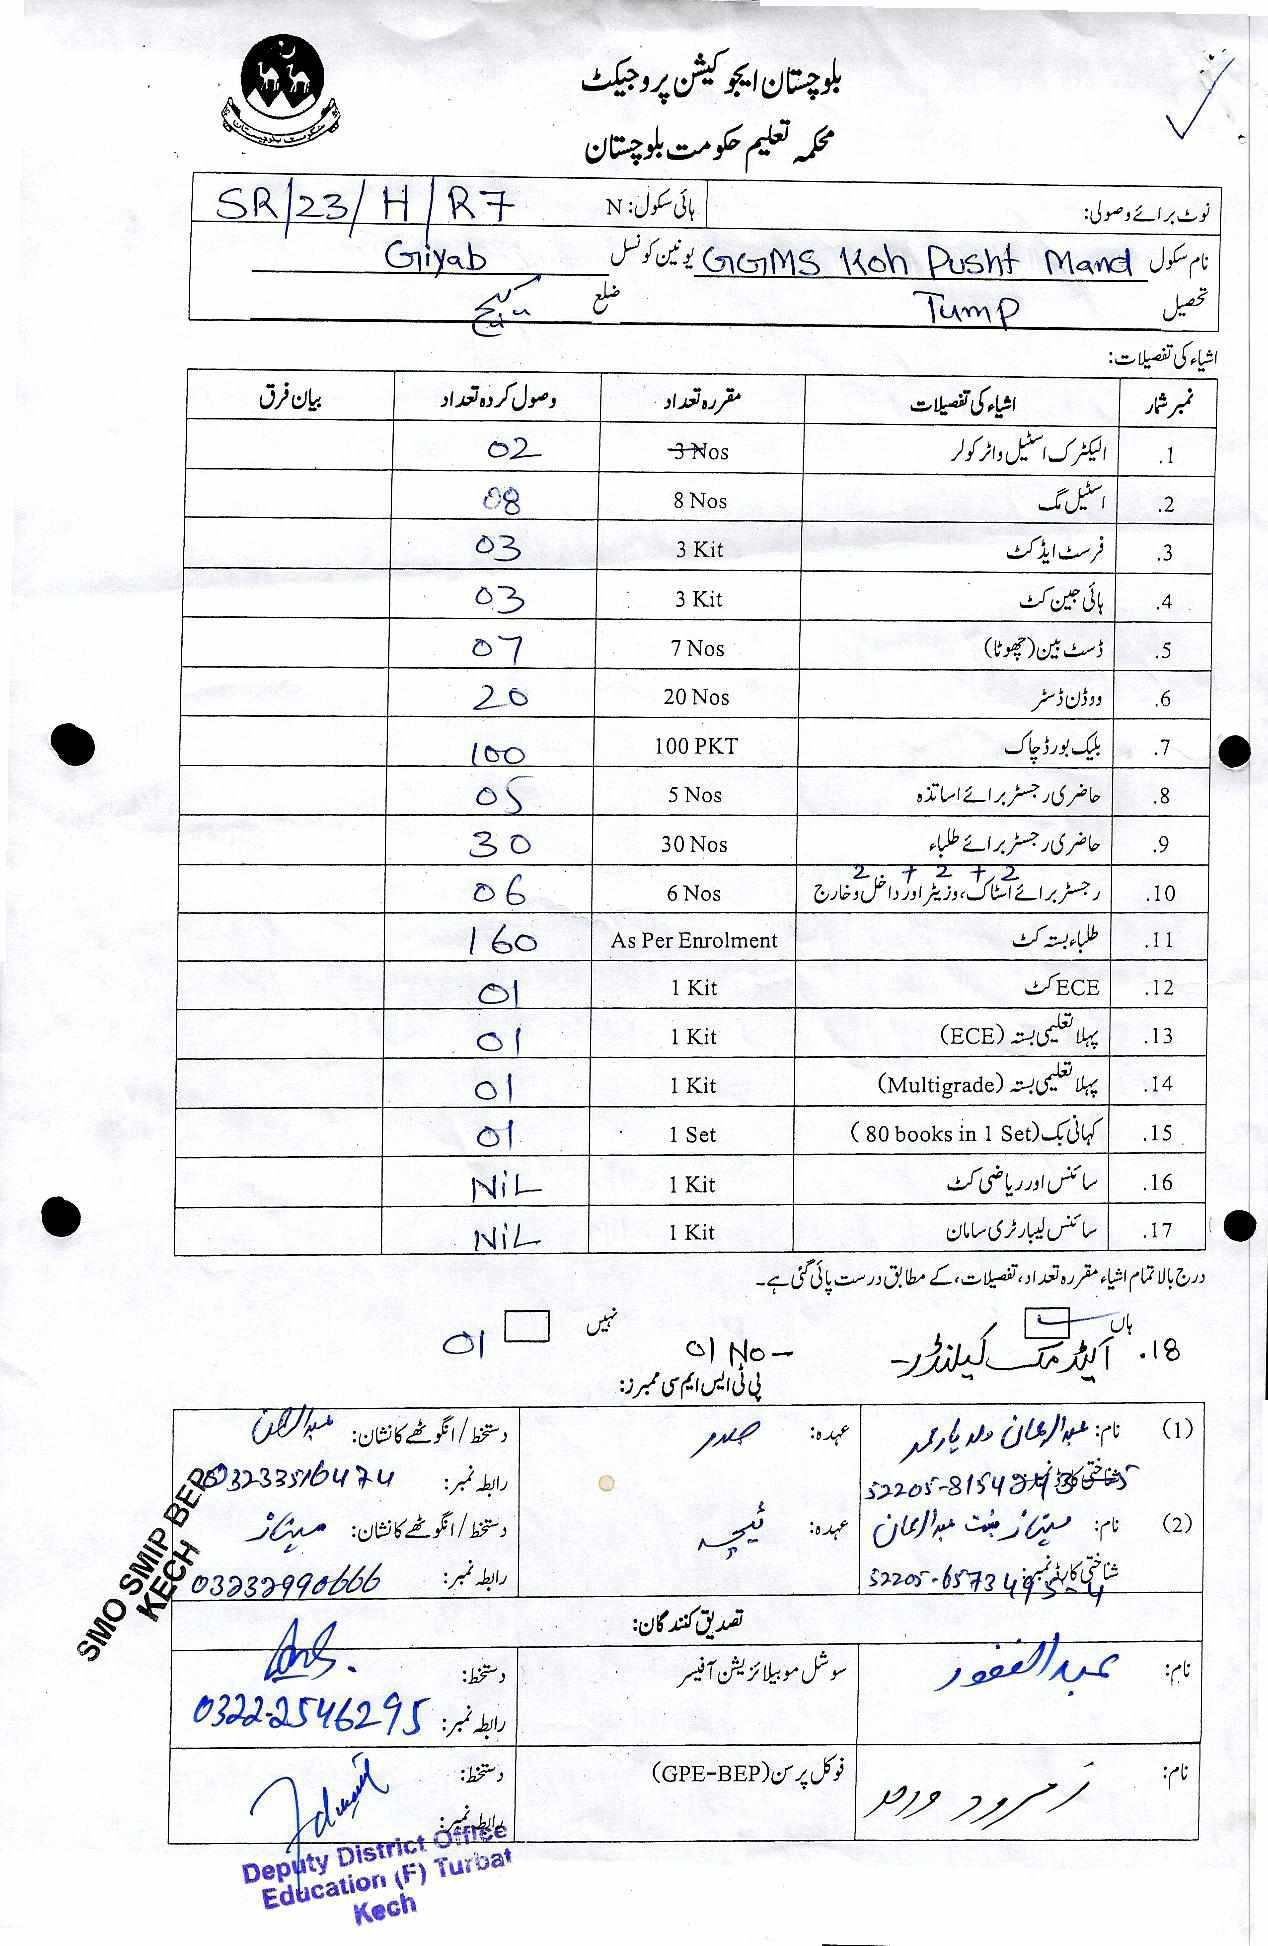 حکومت بلوچستان
بلوچستان ایجوکیشن پروجیکٹ
محکمہ تعلیم حکومت بلوچستان
نوٹ برائے وصولی: ہائی سکول: N SR/23/H/R7
نام سکول GGMS Koh Pusht Mand یونین کونسل Giyab
تحصیل Tump ضلع کیچ
اشیاء کی تفصیلات:
نمبر شمار اشیاء کی تفصیلات مقررہ تعداد وصول کردہ تعداد بیان فرق
1. الیکٹرک اسٹیل واٹر کولر 3 Nos 02
2. اسٹیل مگ 8 Nos 08
3. فرسٹ ایڈ کٹ 3 Kit 03
4. ہائی جین کٹ 3 Kit 03
5. ڈسٹ بین (چھوٹا) 7 Nos 07
6. ووڈن ڈسٹر 20 Nos 20
7. بلیک بورڈ چاک 100 PKT 100
8. حاضری رجسٹر برائے اساتذہ 5 Nos 05
9. حاضری رجسٹر برائے طلباء 30 Nos 30
2 + 2 + 2
10. رجسٹر برائے اسٹاک، وزیٹر اور داخل وخارج 6 Nos 06
11. طلباء بستہ کٹ As Per Enrolment 160
12. ECE کٹ 1 Kit 01
13. پہلا تعلیمی بستہ (ECE) 1 Kit 01
14. پہلا تعلیمی بستہ (Multigrade) 1 Kit 01
15. کہانی بک (80 books in 1 Set) 1 Set 01
16. سائنس اور ریاضی کٹ 1 Kit NiL
17. سائنس لیبارٹری سامان 1 Kit NiL
درج بالا تمام اشیاء مقررہ تعداد، تفصیلات، کے مطابق درست پائی گئی ہے۔
ہاں نہیں
18. کیلنڈر 01 No - 01
پی ٹی ایس ایم سی ممبرز:
(1) نام: عبدالرحمان ولد یار محمد عہدہ: صدر دستخط / انگوٹھے کا نشان: عبدالرحمن
شناختی کارڈ نمبر: رابطہ نمبر: 03233516474
(2) نام: مہناز بنت عبدالرحمان عہدہ: ٹیچر دستخط / انگوٹھے کا نشان: مہناز
شناختی کارڈ نمبر: رابطہ نمبر: 03232990666
SMO SMIP BEP
KECH
تصدیق کنندگان:
نام: عبدالغفور سوشل موبیلائزیشن آفیسر دستخط:
رابطہ نمبر: 0322-2546295
نام: فوکل پرسن (GPE-BEP) دستخط:
رابطہ نمبر:
Deputy District Office
Education (F) Turbat
Kech